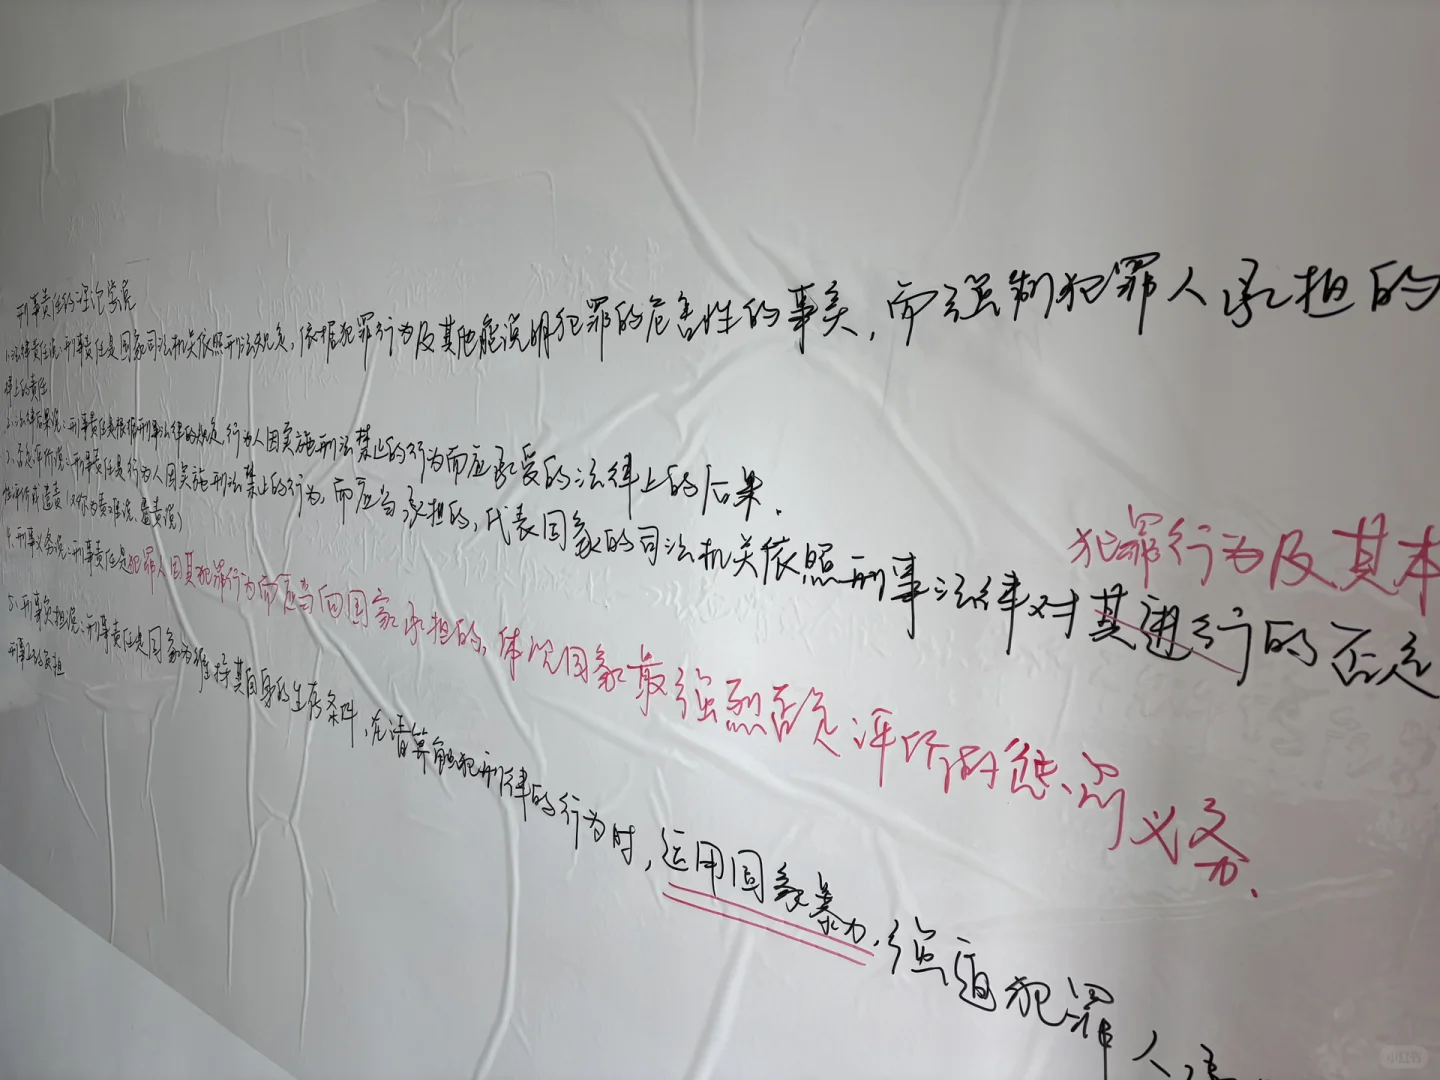 刑事责任的理论学说
1.法律责任说：刑事责任是国家司法机关依照刑法规定，依据犯罪行为及其他能说明犯罪的危害性的事实，而强制犯罪人承担的
律上的责任
2.法律后果说：刑事责任是根据刑事法律的规定，行为人因实施刑法禁止的行为而应承受的法律上的后果．
3.否定评价说：刑事责任是行为人因实施刑法禁止的行为，而应当承担的，代表国家的司法机关依照刑事法律对其进行的否定
犯罪行为及其本
性评价或谴责（又称为责难说、谴责说）
4.刑事义务说：刑事责任是犯罪人因其犯罪行为而应当向国家承担的，体现国家最强烈否定评价的惩罚义务．
5.刑事负担说：刑事责任是国家为维持其自身的生存条件，在清算触犯刑律的行为时，运用国家暴力，强迫犯罪人承
刑事上的负担
小红书